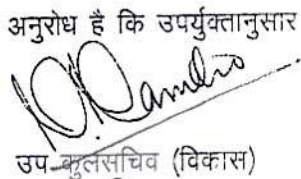 अनुरोध है कि उपर्युक्तानुसार
उप-कुलसचिव (विकास)